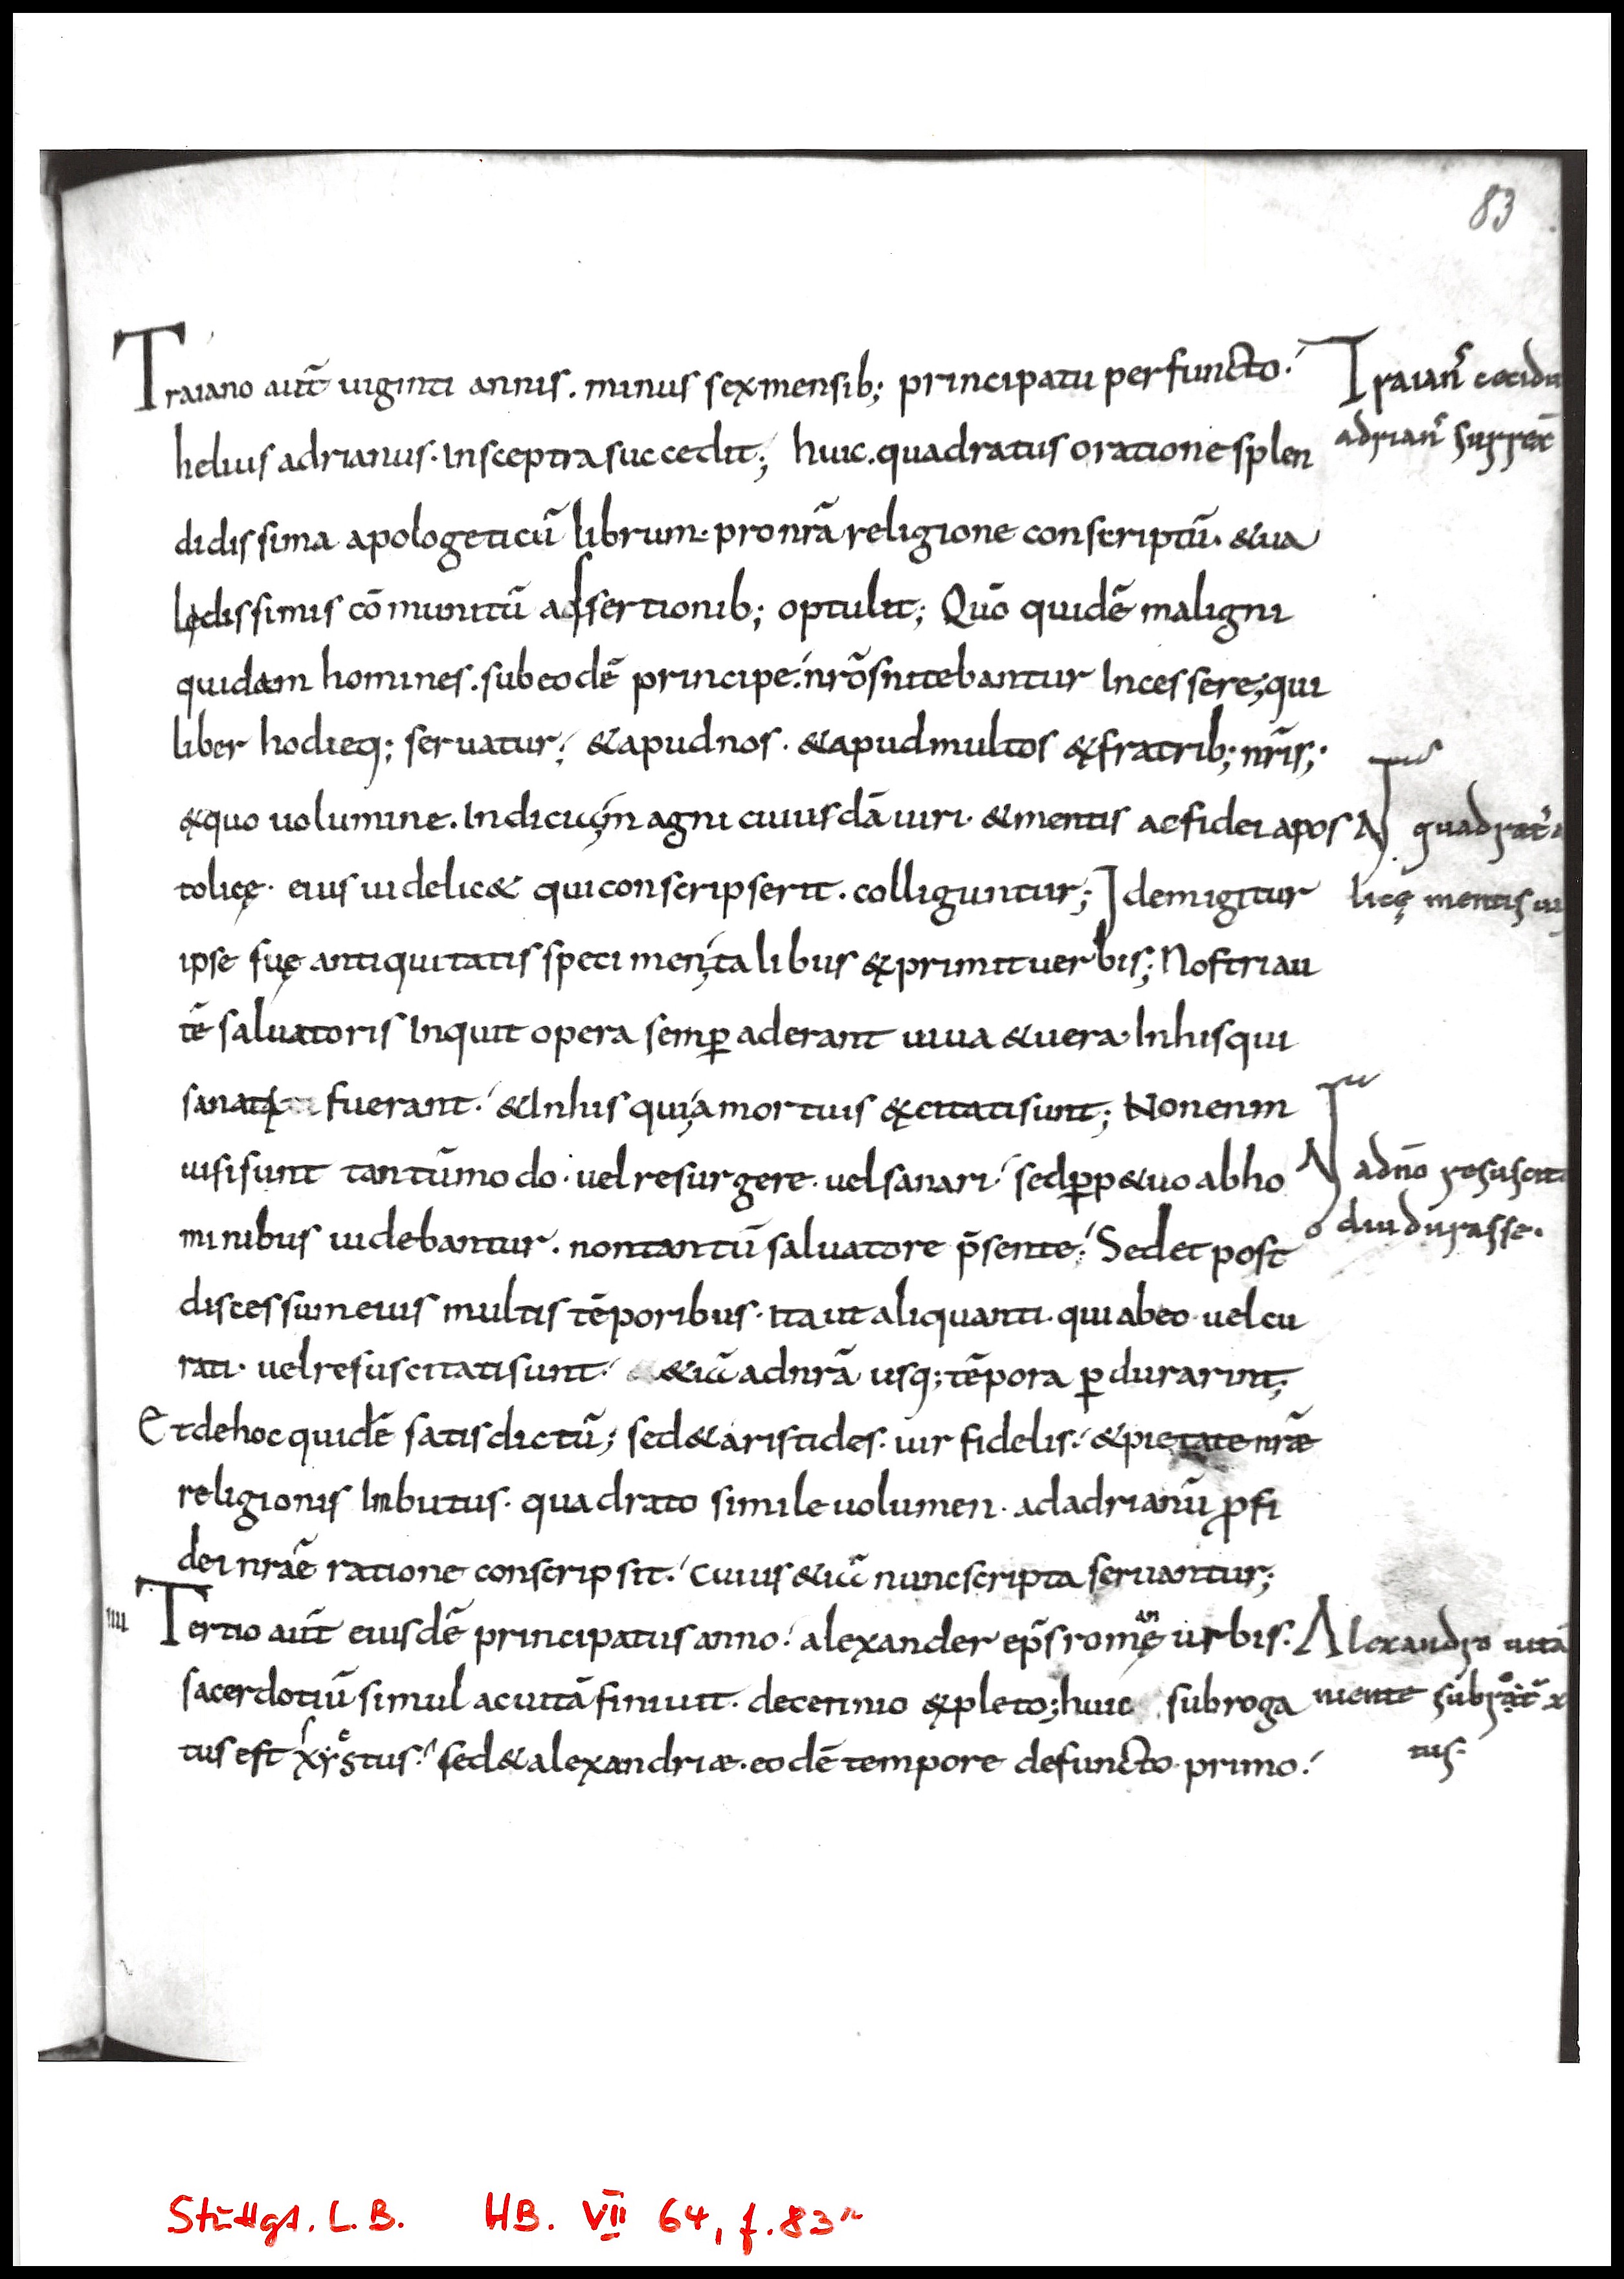 83
Traiano aut̄ uiginti annis. minus sexmensib; principatu perfuncto.
helius adrianus. Insceptra succedit; huic. quadratus oratione splen
didissima apologeticū librum. pronr̄a religione conscriptū. &ua
lędissimis cōmunitū adsertionib; optulit; Quō quidē maligni
quidam homines. subeodē principe. nr̄os nitebantur Incessere; qui
liber hodieq; seruatur; &apudnos. &apudmultos exfratrib; nr̄is;
exquo uolumine. Indicia magni cuiusdā uiri. &mentis acfidei apos
tolicę. eius uidelic& quiconscripserit. colliguntur; Idemigitur
ipse suę antiquitatis specimen talibus exprimit uerbis; Nostri au
tē saluatoris Inquit opera semꝑ aderant uiua &uera. Inhisqui
sanati fuerant. &Inhis qui amortuis excitatisunt; Nonenim
uisisunt tantūmodo. uelresurgere. uelsanari. sedꝑp&uo abho
minibus uidebantur. nontantū saluatore p̄sente; Sedet post
discessum eius multis tēporibus. Itaut aliquanti. quiabeo uelcu
rati. uelresuscitatisunt. &iā adnr̄a usq; tēpora ꝑdurarint;
Etdehoc quidē satis dictū; sed&aristides. uir fidelis. &pietate nr̄æ
religionis Inbutus. quadrato simile uolumen. adadrianū ꝓfi
dei nr̄ae ratione conscripsit. cuius&iā nunc scripta seruantur;
IIII Tertio aut̄ eiusdē principatus anno. alexander ep̄s romanę urbis.
sacerdotiū simul acuitā finiuit. decennio expleto; huic subroga
tus est xystus. sed&alexandriæ. eodē tempore defuncto primo.
Traian' cecidit
adrian' surrex̄
N quadrat'
licę mentis ui
N adn̄o resuscita
diudurasse.
Alexandro uitā
niente subrogat'
tus.
Stuttgt. L.B. HB. VII 64, f. 83r